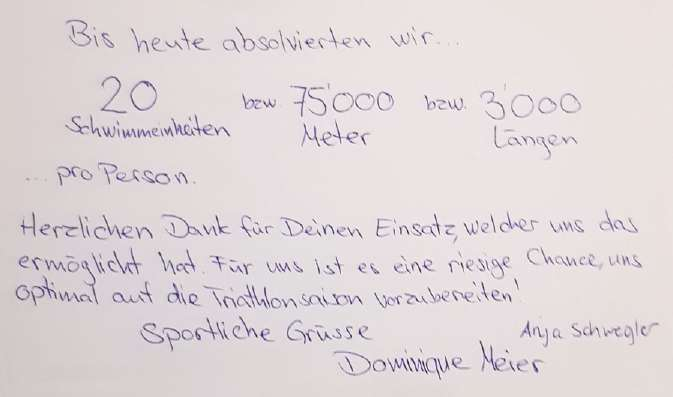 Bis heute absolvierten wir...
20 bzw. 75'000 bzw. 3'000
Schwimmeinheiten Meter Längen
... pro Person.
Herzlichen Dank für Deinen Einsatz, welcher uns das
ermöglicht hat. Für uns ist es eine riesige Chance, uns
optimal auf die Triathlonsaison vorzubereiten!
Sportliche Grüsse Anja Schwegler
Dominique Meier